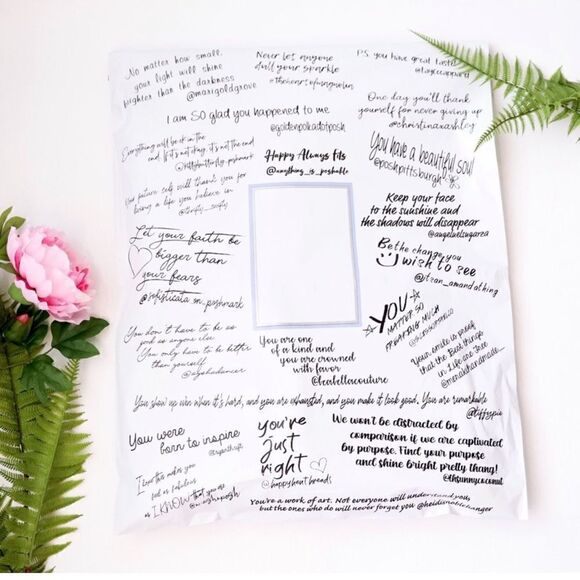 No matter how small
your light will shine
brighter than the darkness
@marigoldgrove
Never let anyone
dull your sparkle
P.S. you have great taste
I am SO glad you happened to me
@goldenpolkadotposh
One day you'll thank
yourself for never giving up
@christinaxashley
Everything will be ok in the
end. If it's not okay, it's not the end
@kittybutterfly_poshmark
Happy Always Fits
@anything_is_poshable
You have a beautiful soul
@poshpittsburgh
Your future self will thank you for
being a life you believe in
@thrifty_swifty
Keep your face
to the sunshine and
the shadows will disappear
Let your faith be
bigger than
your fears
@sofisticata_on_poshmark
Be the change you
wish to see
@tran_amandathing
YOU
MATTER SO
FREAKING MUCH
You don't have to be as
good as anyone else
You only have to be better
than yourself
You are one
of a kind and
you are crowned
with favor
@leafellecouture
Your smile is proof
that the Best things
in Life are Free
You show up even when it's hard, and you are exhausted, and you make it look good. You are remarkable
You were
born to inspire
you're
just
right
@happyheartbreads
We won't be distracted by
comparison if we are captivated
by purpose. Find your purpose
and shine bright pretty thang!
@lhsunnycoconut
I hope this makes you
feel as fabulous
as I KNOW that you are
You're a work of art. Not everyone will understand you,
but the ones who do will never forget you